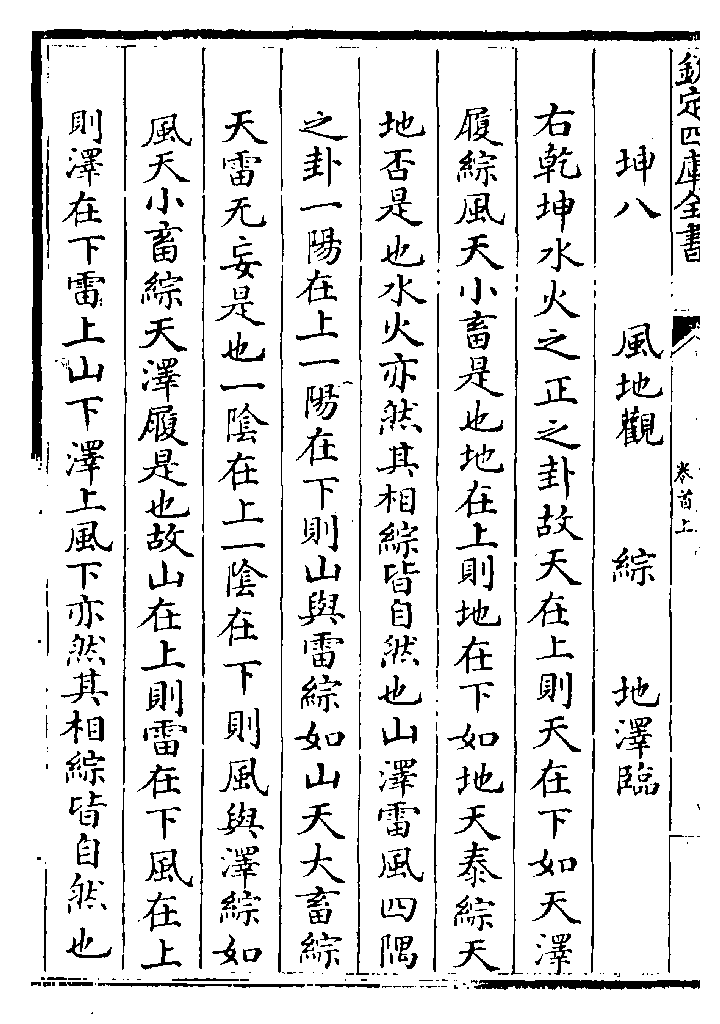 欽定四庫全書
卷首上
坤八　風地觀　綜　地澤臨
右乾坤水火之正之卦故天在上則天在下如天澤
履綜風天小畜是也地在上則地在下如地天泰綜天
地否是也水火亦然其相綜皆自然也山澤雷風四隅
之卦一陽在上一陽在下則山與雷綜如山天大畜綜
天雷无妄是也一陰在上一陰在下則風與澤綜如
風天小畜綜天澤履是也故山在上則雷在下風在上
則澤在下雷上山下澤上風下亦然其相綜皆自然也